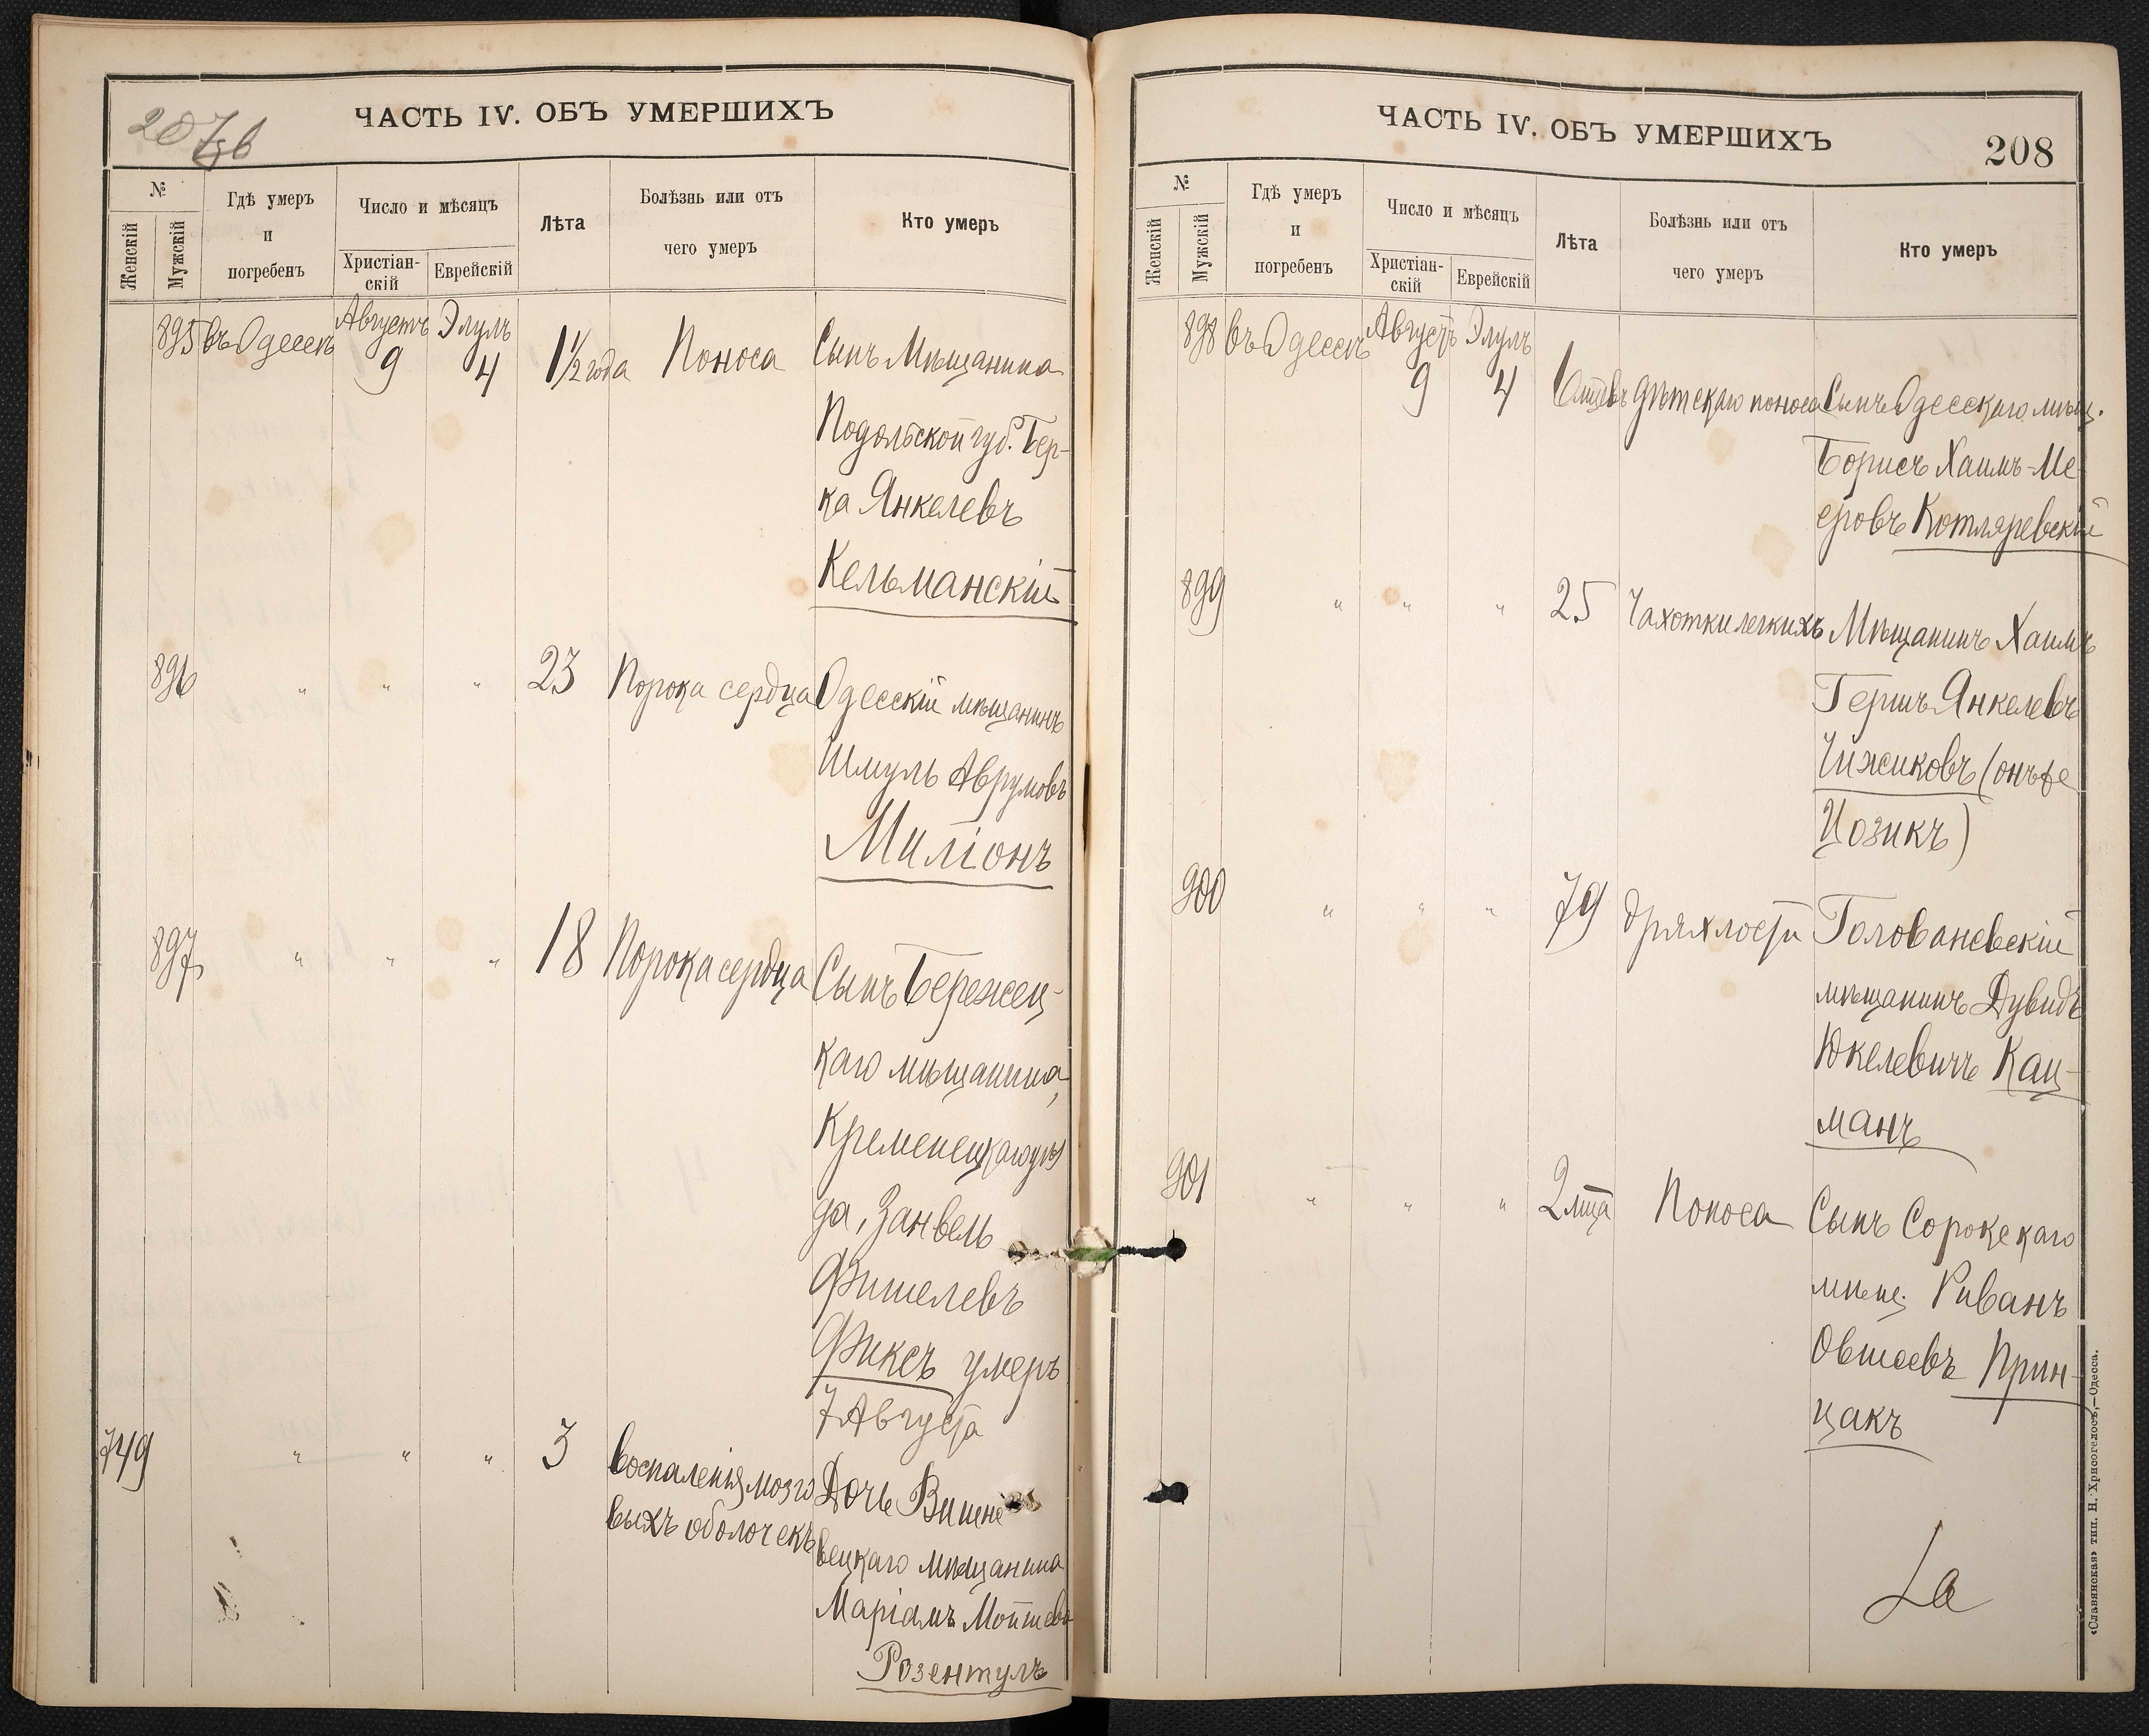 207об
ЧАСТЬ IV. ОБЪ УМЕРШИХЪ
№
Женскій
Мужскій
Гдѣ умеръ
и
погребенъ
Число и мѣсяцъ
Христіан-
скій
Еврейскій
Лѣта
Болѣзнь или отъ
чего умеръ
Кто умеръ
895 въ Одессѣ Августъ 9 Элулъ 4 1½ года Поноса Сынъ Мѣщанина
Подольской губ. Бер-
ка Янкелевъ
Кельманскій
896 " " " 23 Порока сердца Одесскій мѣщанинъ
Шмуль Аврумовъ
Миліонъ
897 " " " 18 Порока сердца Сынъ Бережец-
каго мѣщанина,
Кременецкаго уѣз
да, Занвель
Фишелевъ
Фиксъ умеръ
7 Августа
749 " " " 3 Воспаленія мозго Дочь Вишне
выхъ оболочекъ вецкаго мѣщанина
Маріамъ Мотшева
Розентулъ
ЧАСТЬ IV. ОБЪ УМЕРШИХЪ
208
№
Женскій
Мужскій
Гдѣ умеръ
и
погребенъ
Число и мѣсяцъ
Христіан-
скій
Еврейскій
Лѣта
Болѣзнь или отъ
чего умеръ
Кто умеръ
898 въ Одессѣ Августъ 9 Элулъ 4 6 мцевъ дѣтскаго поноса Сынъ Одесскаго мѣщ.
Борисъ Хаимъ-Ме-
еровъ Котляревскій
899 " " " 25 Чахотки легкихъ Мѣщанинъ Хаимъ
Гершъ Янкелевъ
Чижиковъ (онъ же
Цозикъ)
900 " " " 79 дряхлости Голованевскій
мѣщанинъ Дувидъ
Юкелевичъ Кац-
манъ
901 " " " 2 мца Поноса Сынъ Сорокскаго
мѣщ. Риванъ
Овшеевъ Прин-
цакъ
«Славянская» тип. Н. Хрисогелосъ,—Одесса.